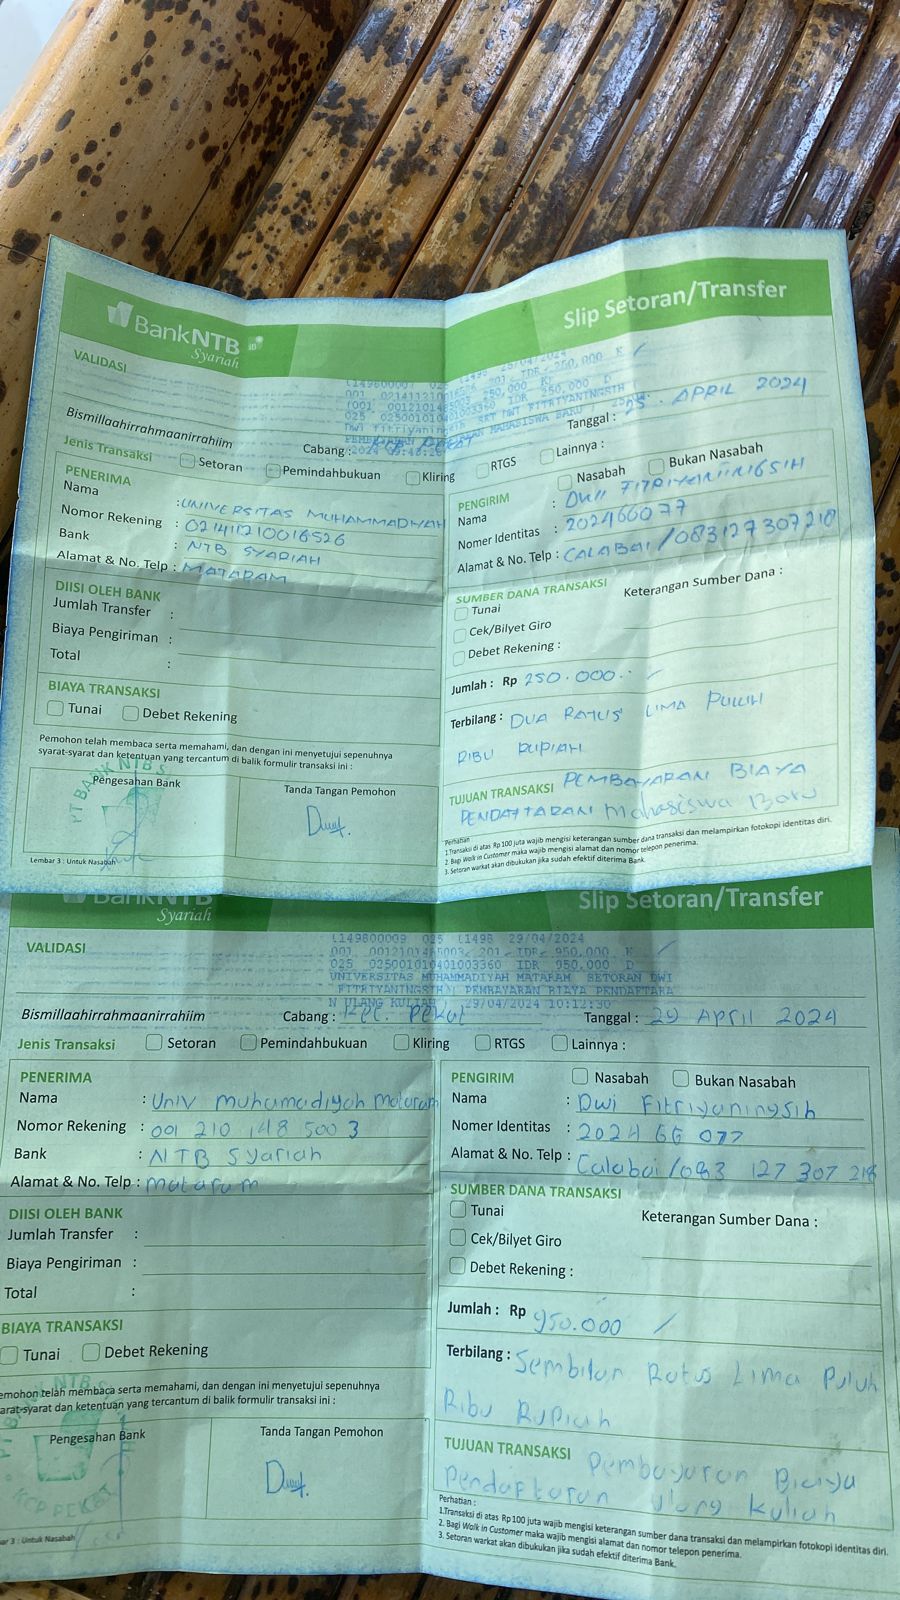 BankNTB
Syariah
Slip Setoran/Transfer
VALIDASI
25/04/2024
IDR 250,000 K
IDR 250,000 D
Bismillaahirrahmaanirrahiim
Cabang :
Tanggal : 25 APRIL 2024
Jenis Transaksi Setoran Pemindahbukuan Kliring RTGS Lainnya :
PENERIMA
Nama : UNIVERSITAS MUHAMMADIYAH
Nomor Rekening : 021411210016526
Bank : NTB SYARIAH
Alamat & No. Telp : MATARAM
PENGIRIM Nasabah Bukan Nasabah
Nama : DWI FITRIYANINGSIH
Nomer Identitas : 202466077
Alamat & No. Telp : CALABAI / 083127307218
DIISI OLEH BANK
Jumlah Transfer :
Biaya Pengiriman :
Total :
SUMBER DANA TRANSAKSI
Keterangan Sumber Dana :
Tunai
Cek/Bilyet Giro
Debet Rekening :
BIAYA TRANSAKSI
Tunai Debet Rekening
Jumlah : Rp 250.000
Terbilang : DUA RATUS LIMA PULUH
RIBU RUPIAH
Pemohon telah membaca serta memahami, dan dengan ini menyetujui sepenuhnya
syarat-syarat dan ketentuan yang tercantum di balik formulir transaksi ini :
Pengesahan Bank
Tanda Tangan Pemohon
PT BANK NTB S
TUJUAN TRANSAKSI PEMBAYARAN BIAYA
PENDAFTARAN Mahasiswa Baru
Perhatian
1.Transaksi di atas Rp 100 juta wajib mengisi keterangan sumber dana transaksi dan melampirkan fotokopi identitas diri.
2. Bagi Walk in Customer maka wajib mengisi alamat dan nomor telepon penerima.
3. Setoran warkat akan dibukukan jika sudah efektif diterima Bank.
Lembar 3 : Untuk Nasabah
BankNTB
Syariah
Slip Setoran/Transfer
VALIDASI
L149800009 025 L1498 29/04/2024
001 0012101485003 201 IDR 950,000 K
025 025001010401003360 IDR 950,000 D
UNIVERSITAS MUHAMMADIYAH MATARAM SETORAN DWI
FITRIYANINGSIH PEMBAYARAN BIAYA PENDAFTARA
N ULANG KULIAH 29/04/2024 10:12:30
Bismillaahirrahmaanirrahiim
Cabang : Kec. Pekat
Tanggal : 29 April 2024
Jenis Transaksi Setoran Pemindahbukuan Kliring RTGS Lainnya :
PENERIMA
Nama : Univ muhamadiyah mataram
Nomor Rekening : 001 210 148 500 3
Bank : NTB Syariah
Alamat & No. Telp : mataram
PENGIRIM Nasabah Bukan Nasabah
Nama : Dwi Fitriyaningsih
Nomer Identitas : 2024 66 077
Alamat & No. Telp : Calabai / 083 127 307 218
DIISI OLEH BANK
Jumlah Transfer :
Biaya Pengiriman :
Total :
SUMBER DANA TRANSAKSI
Tunai
Keterangan Sumber Dana :
Cek/Bilyet Giro
Debet Rekening :
BIAYA TRANSAKSI
Tunai Debet Rekening
Jumlah : Rp 950.000
Terbilang : Sembilan Ratus Lima Puluh
Ribu Rupiah
emohon telah membaca serta memahami, dan dengan ini menyetujui sepenuhnya
arat-syarat dan ketentuan yang tercantum di balik formulir transaksi ini :
Pengesahan Bank
Tanda Tangan Pemohon
KCP PEKAT
TUJUAN TRANSAKSI Pembayaran Biaya
Pendaftaran ulang kuliah
Perhatian :
1.Transaksi di atas Rp 100 juta wajib mengisi keterangan sumber dana transaksi dan melampirkan fotokopi identitas diri.
2. Bagi Walk in Customer maka wajib mengisi alamat dan nomor telepon penerima.
3. Setoran warkat akan dibukukan jika sudah efektif diterima Bank.
bar 3 : Untuk Nasabah